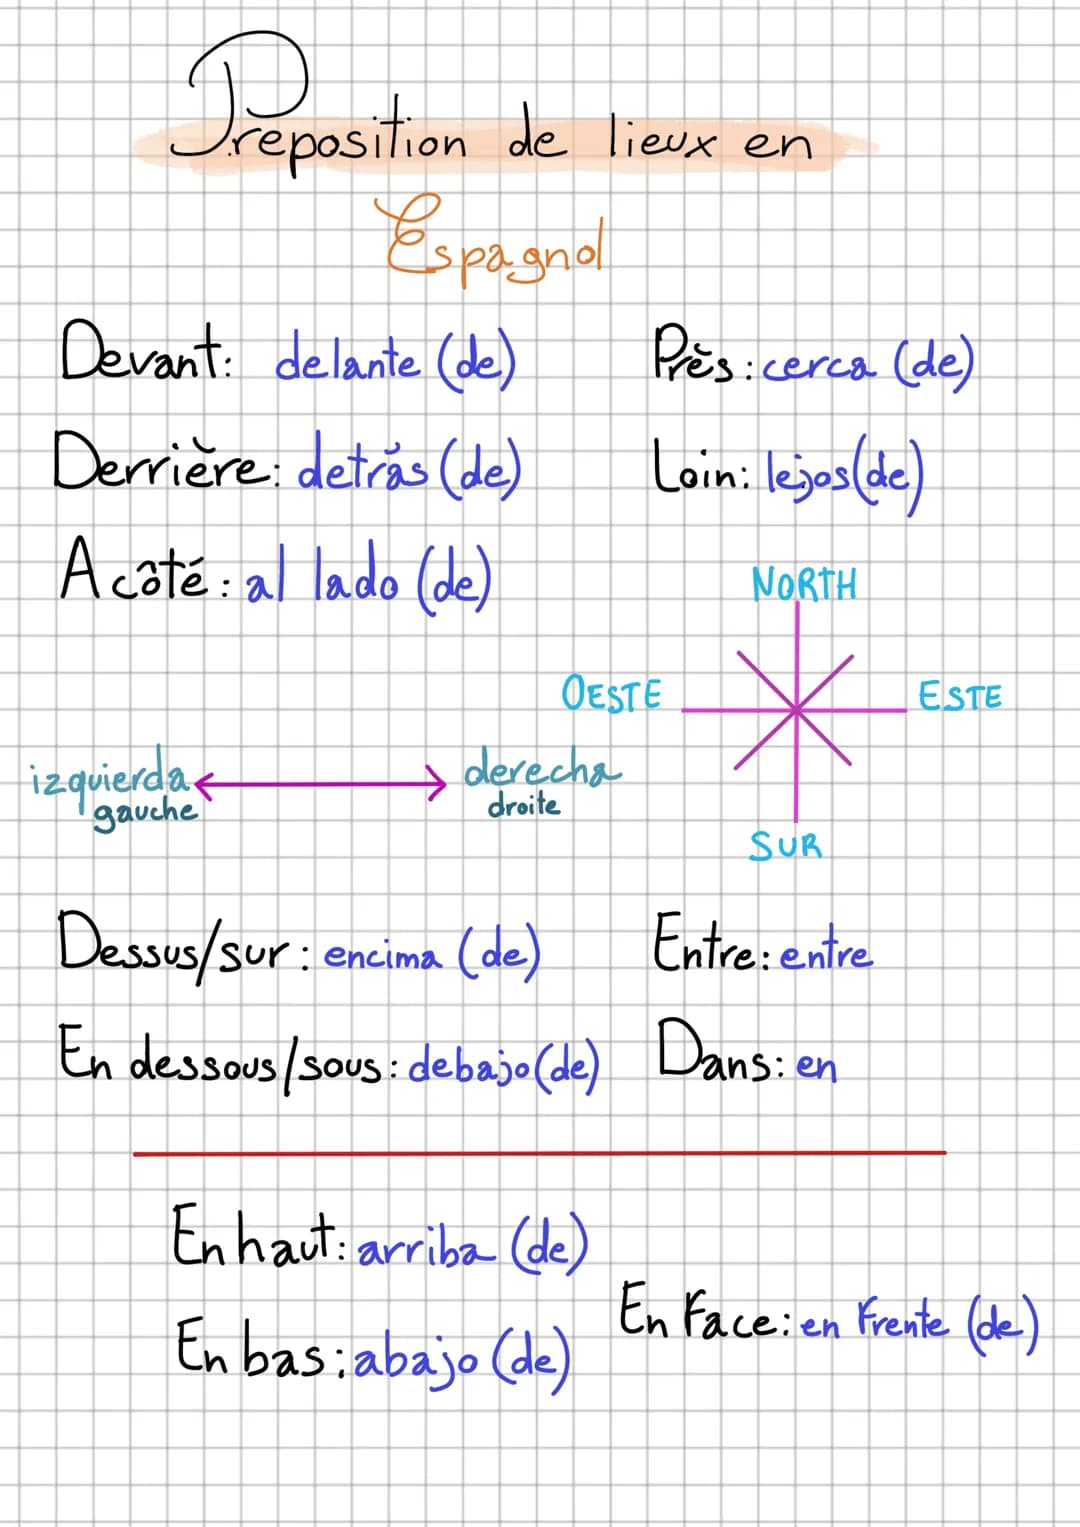 Preposition de lieux en
Espagnol
Devant: delante (de)
Près: cerca (de)
Derrière: detrás (de)
Loin: lejos(de)
A côté: al lado (de)
NORTH
OESTE
ESTE
izquierda
gauche
derecha
droite
SUR
Dessus/sur: encima (de)
Entre: entre
En dessous/sous: debajo(de)
Dans: en
En haut: arriba (de)
En Face: en Frente (de)
En bas: abajo (de)